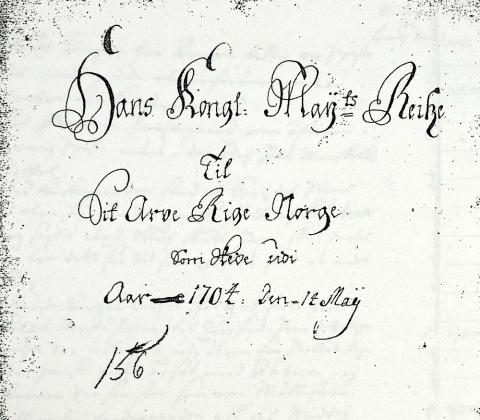 Hans Kongl: Maÿts Reitze
Til
Sit Arve Rige Norge
Som Skede udi
Aar 1704: Den 14 Maÿ
156